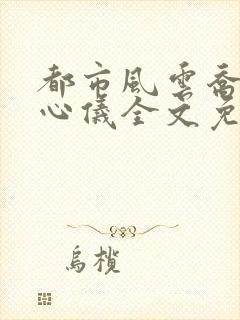 都市風雲喬
心儀全文免
烏欖